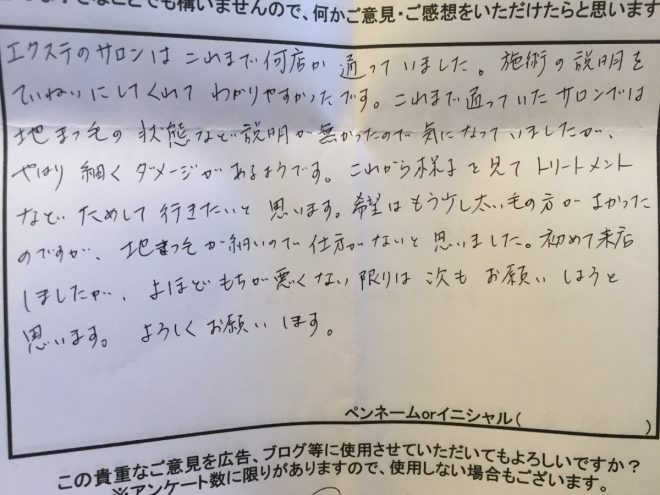 なことでも構いませんので、何かご意見・ご感想をいただけたらと思います
エクステのサロンは これまで何店か 通っていました。施術の説明を
ていねいにしてくれて わかりやすかったです。これまで通っていた サロンでは
地まつ毛の 状態など説明が 無かったので 気になっていましたが、
やはり 細く ダメージがあるようです。これから様子を見て トリートメント
など ためして 行きたいと 思います。希望はもう少し太い毛の方が よかった
のですが、地まつ毛が細いので 仕方がないと 思いました。初めて来店
しましたが、よほど もちが悪くない 限りは 次も お願い しようと
思います。 よろしく お願い します。
ペンネームorイニシャル( )
この貴重なご意見を広告、ブログ等に使用させていただいてもよろしいですか?
※アンケート数に限りがありますので、使用しない場合もございます。